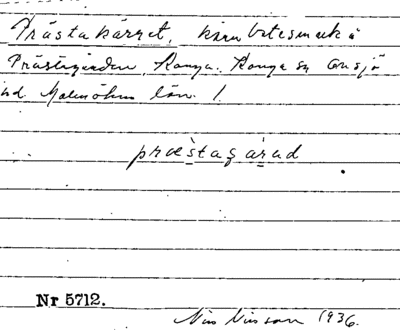 Prästakärret, kärr betesmark å
Prästgården, Konga. Konga sn Onsjö
hd. Malmöhus län.
præstagárad
Nr 5712.
Nils Nilsson 1936.